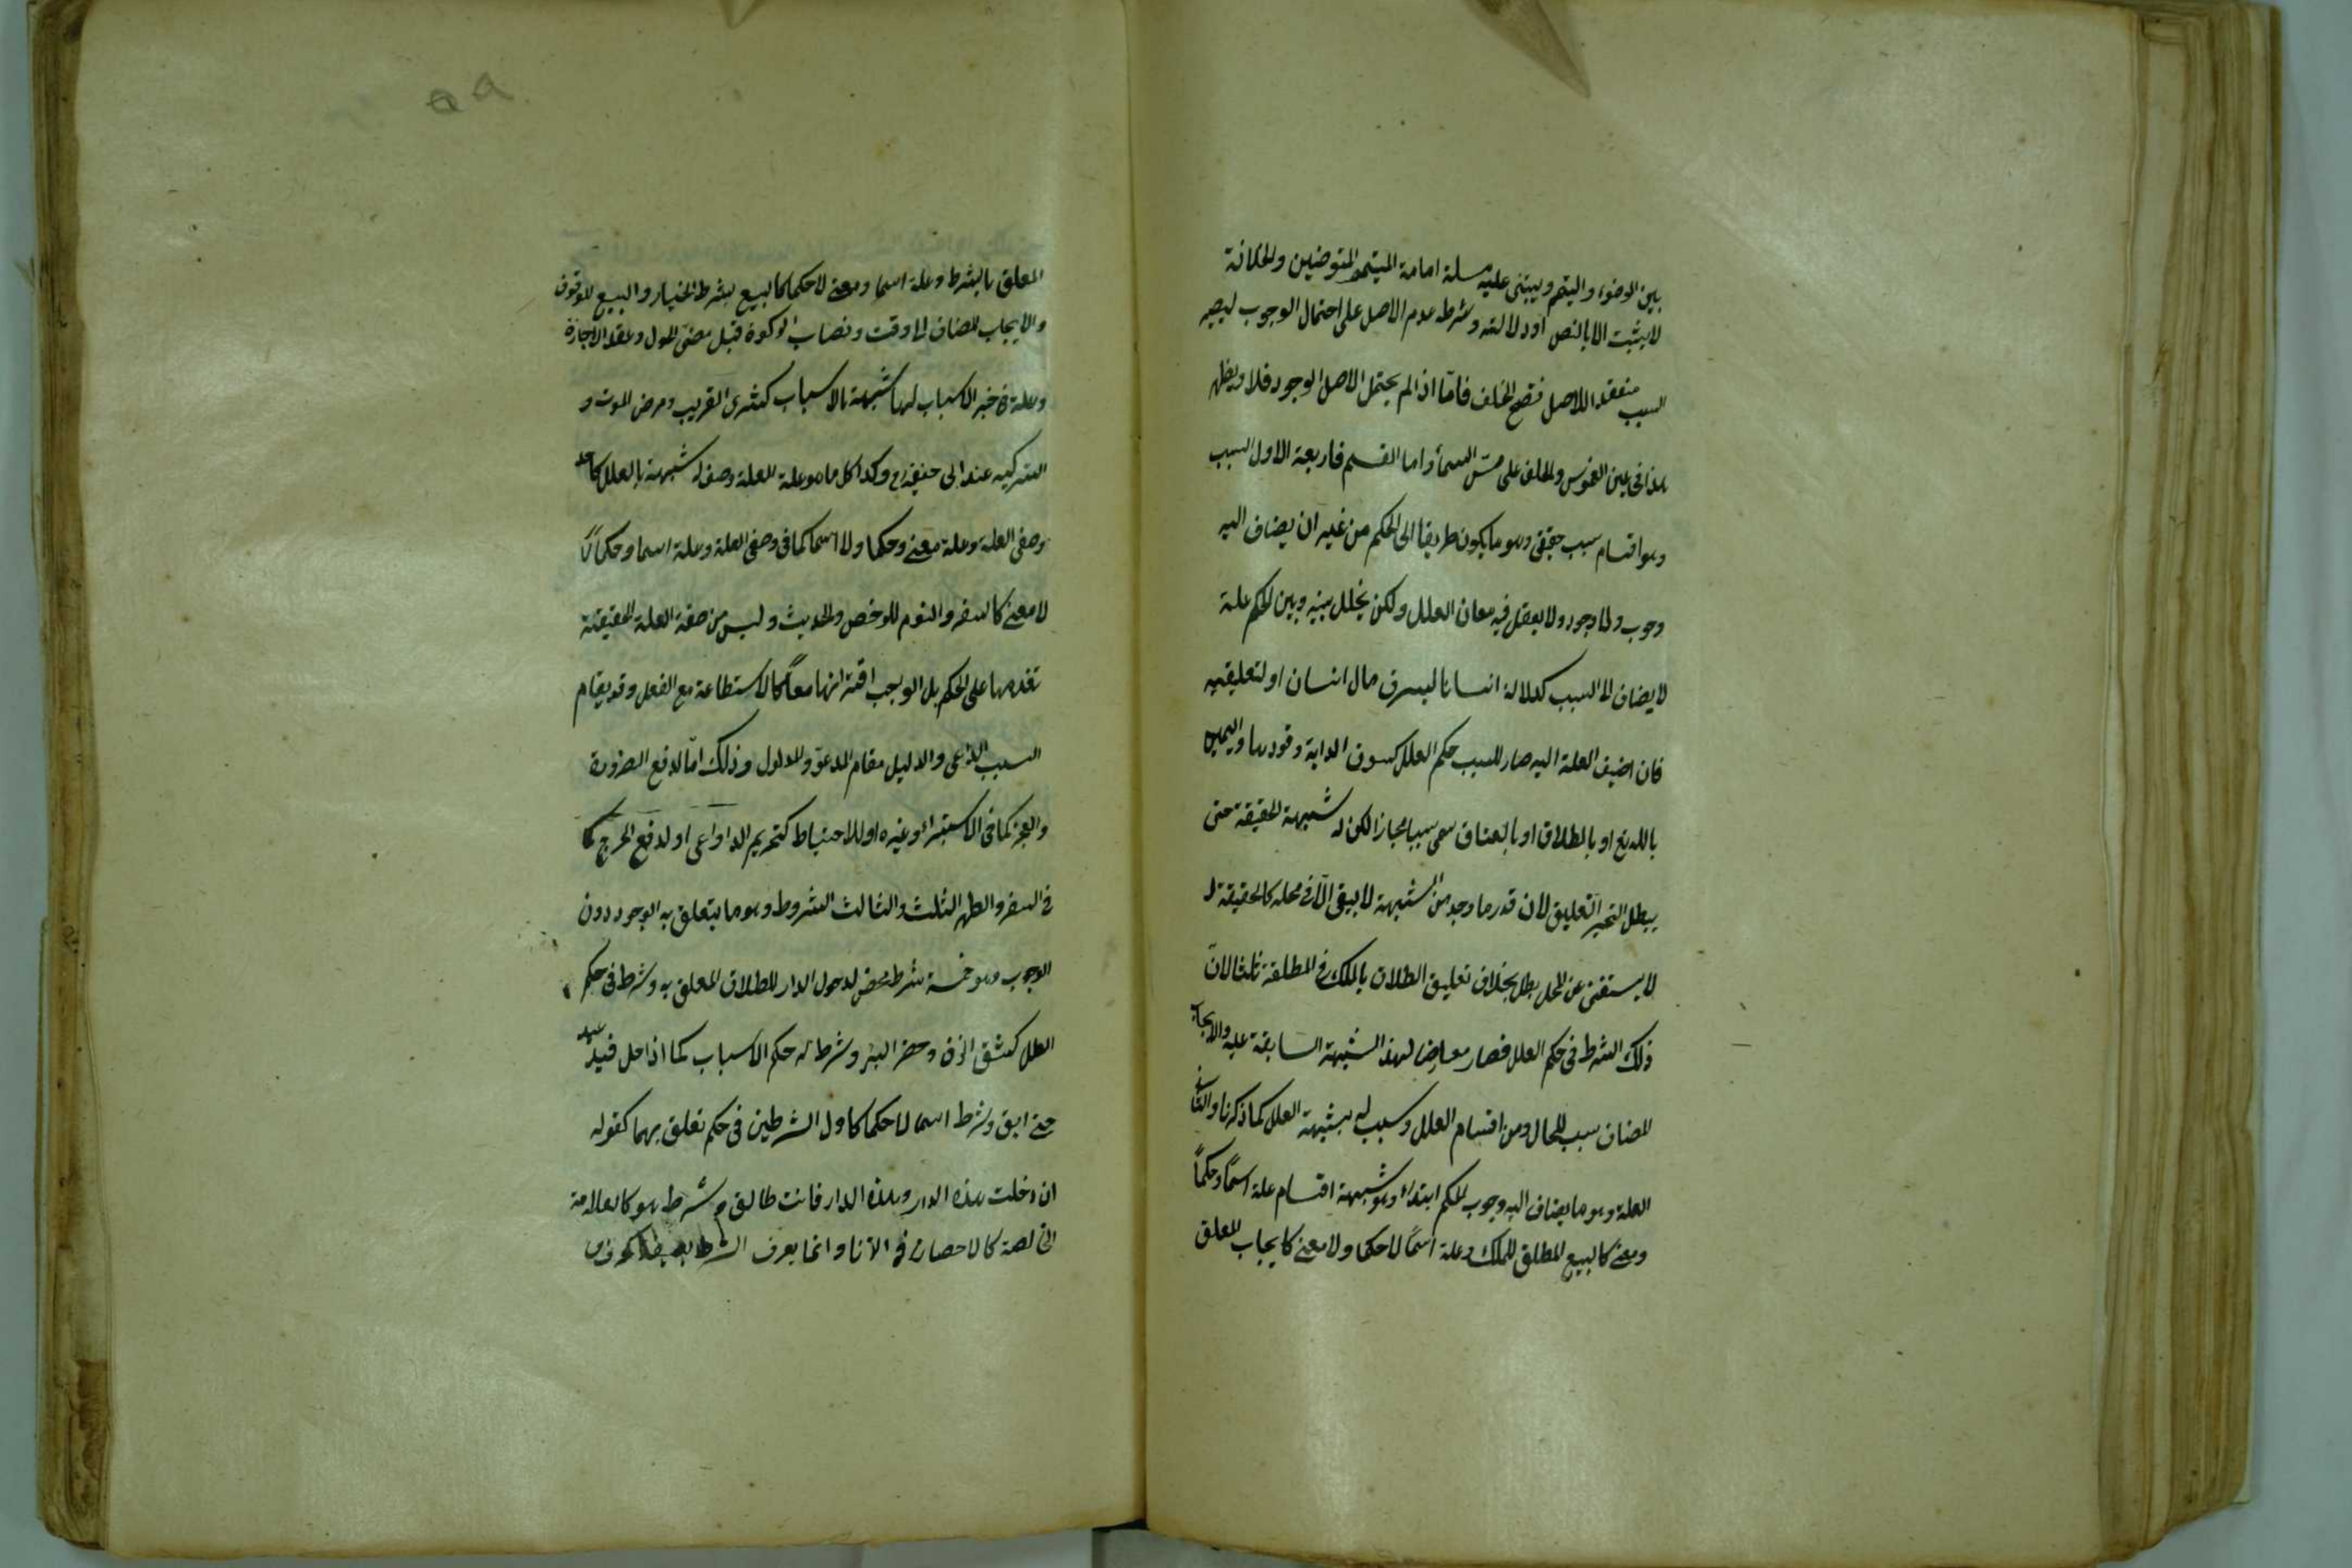 بين الوضوء والتيمم ويبتنى عليه مسلة امامة المتيمم المتوضين والخلافة
لا يثبت الا بالنص او دلالته وشرطه عدم الاصل على احتمال الوجوب ليصير
السبب منعقدا للاصل فتصح الخلف فامّا اذا لم يحتمل الاصل الوجود فلا ويظهر
هذا فى يمين الغموس والحلف على مسّ السماء واما القسم فاربعة الاول السبب
وهو اقسام سبب حقيقى وهو ما يكون طريقا الى الحكم من غير ان يضاف اليه
وجوب ولا وجود ولا يعقل فيه معان العلل ولكن يخلل بينه وبين الحكم علة
لا يضاف الى السبب كدلالة انسانا ليسرق مال انسان او لتعليقيه
فان اضيف العلة اليه صار للسبب حكم العلل كسوق الدابة وقودها واليمين
بالله تع او بالطلاق او بالعتاق سمى سببا مجازا لكن له شبهة الحقيقة حتى
يبطل التنجيز التعليق لان قدر ما وجد من الشبهة لا يبقى الّا فى محله كالحقيقة لا
لا يستغنى عن المحل بطل بخلاف تعليق الطلاق بالملك فى المطلقة ثلثا لانّ
ذلك الشرط فى حكم العلل فصار معارضا لهذا الشبهة السابقة عليه والايجاب
المضاف سبب للحال ومن اقسام العلل وسبب له شبهة العلل كما ذكرنا والثانى
العلة وهو ما يضاف اليه وجوب الحكم ابتداء وهو شبهة اقسام علة اسمًا وحكمًا
ومعنى كالبيع المطلق للملك وعلة اسمًا لا حكما ولا معنى كايجاب المعلق
المعلق بالشرط وعلة اسما ومعنى لا حكما كالبيع بشرط الخيار والبيع الموقوف
والايجاب المضاف الى وقت ونصاب الزكوة قبل مضى الحول وعقد الاجازة
وعلة فى خبر الاسباب لها شبهة بالاسباب كشرى القريب ومرض الموت و
التزكيه عند ابى حنيفة رح وكذا كل ما هو علة العلة وصف له شبهة بالعلل كاحد
وصفى العلة وعلة معنى وحكما ولا اسما كما فى وصفى العلة وعلة اسما وحكما لا
لا معنى كالسفر والنوم للرخص والحديث وليس من صفة العلة الحقيقية
تقدمها على الحكم بل الواجب اقترانها معاً كالاستطاعة مع الفعل وقد يقام
السبب الداعى والدليل مقام المدعوّ والمدلول وذلك امّا لدفع الضرورة
والعجز كما فى الاستبراء وغيره او للاحتياط كتحريم الدواعى او لدفع الحرج كما
فى السفر والطهر الثلث والثالث الشروط وهو ما يتعلق به الوجود دون
الوجوب وهو خمسة شرط محض لدخول الدار للطلاق المعلق به وشرط فى حكم
العلل كشق الزق وحفر البئر وشرط له حكم الاسباب كما اذا حل قيد عبد
حتى ابق وشرط اسما لا حكما كاول الشرطين فى حكم تعلق بهما كقوله
ان دخلت هذه الدار وهذه الدار فانت طالق وشرط هو كالعلامة
الخالصة كالاحصان فى الزنا وانما يعرف الشرط بصيغة